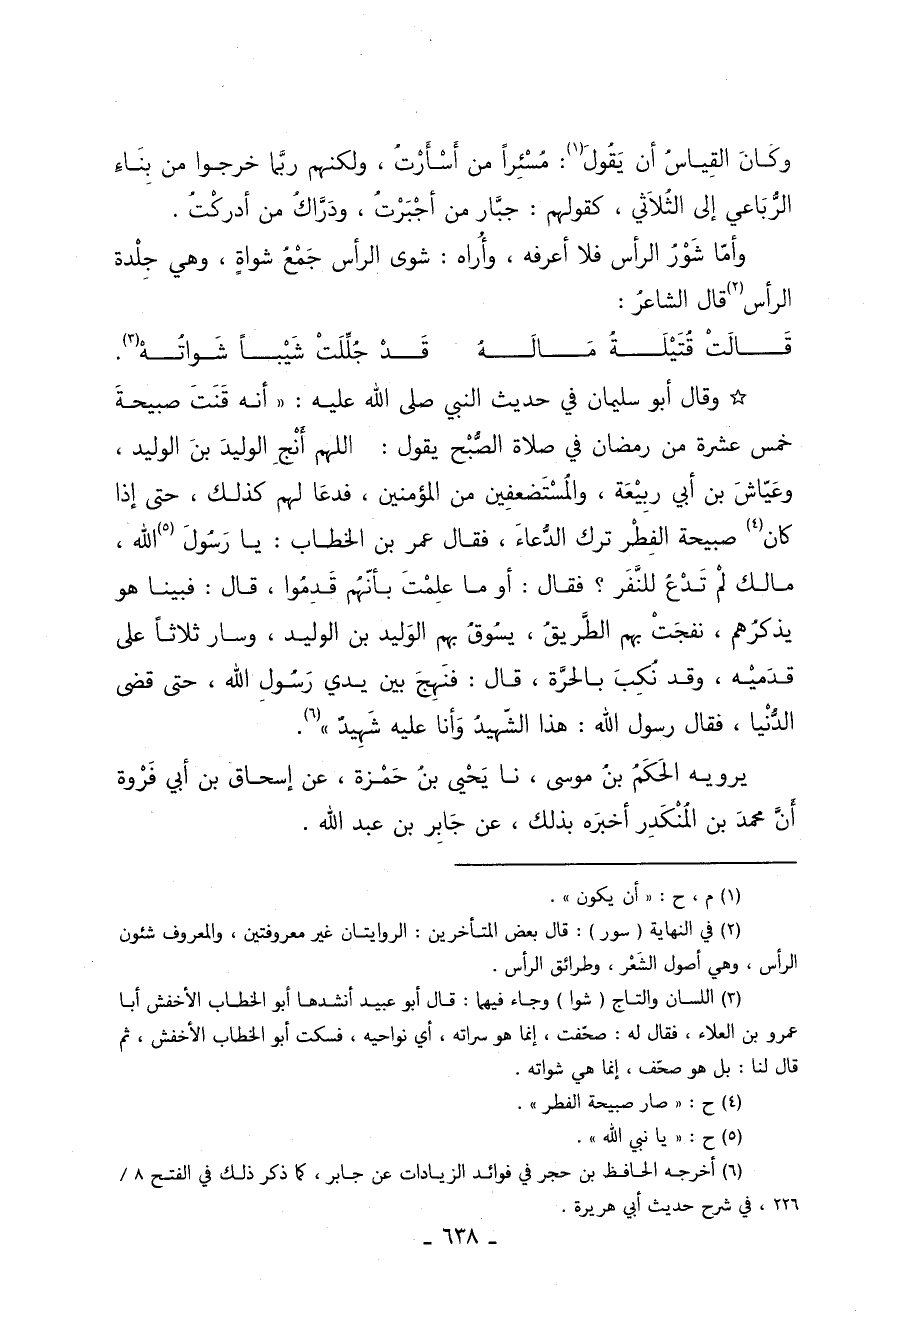 وكَانَ القِياسُ أن يَقُولَ(١): مُسْئِراً من أَسْأَرْتُ ، ولكنهم ربَّما خرجوا من بِنَاء
الرُّبَاعي إلى الثُّلاَثي ، كقولهم : جبَّار من أجْبَرْتُ ، ودَرَّاكُ من أدركْتُ .
وأمّا شَوْرُ الرأس فلا أعرفه ، وأُراه : شوى الرأس جَمْعُ شواةٍ ، وهي جِلْدة
الرأس(٢)قال الشاعرُ :
قَالَتْ قُتَيْلَةُ مَالَهُ قَدْ جُلِّلَتْ شَيْباً شَواتُهْ(٣).
☆ وقال أبو سليمان في حديث النبي صلى الله عليه : « أنه قَنَتَ صبيحةَ
خمس عشرة من رمضان في صلاة الصُّبْح يقول : اللهم أَنْجِ الوليدَ بنَ الوليد ،
وعَيّاشَ بن أبي ربِيْعَة ، والمُسْتَضعفِين من المؤمنين ، فدعَا لهم كذلك ، حتى إذا
كان(٤) صبيحة الفِطْر ترك الدُّعاءَ ، فقال عمر بن الخطاب : يا رَسُولَ (٥)الله ،
مالك لمْ تَدْعُ للنَّفَر ؟ فقال : أو ما علِمْتَ بأنّهُم قَدِمُوا ، قال : فبينا هو
يذكرُهم ، نفجَتْ بهم الطَّريقُ ، يسُوقُ بهم الوَليد بن الوليد ، وسار ثلاثاً على
قدمَيْه ، وقد نُكِبَ بالحرَّة ، قال : فنَهِجَ بين يدي رَسُولِ الله ، حتى قضى
الدُّنْيا ، فقال رسول الله : هذا الشّهيدُ وَأنا عليه شَهِيدٌ »(٦).
يرويه الحَكَمُ بنُ موسى ، نا يَحْيى بنُ حَمْزة ، عن إسحاق بن أبي فَرْوة
أنَّ محمدَ بن المُنْكَدِر أخبَره بذلك ، عن جَابِر بن عبد الله .
(١) م ، ح : « أن يكون » .
(٢) في النهاية ( سور ) : قال بعض المتأخرين : الروايتان غير معروفتين ، والمعروف شئون
الرأس ، وهي أصول الشَعْر ، وطرائق الرأس .
(٣) اللسان والتاج ( شوا ) وجاء فيها : قال أبو عبيد أنشدها أبو الخطاب الأخفش أبا
عمرو بن العلاء ، فقال له : صحّفت ، إنما هو سراته ، أي نواحيه ، فسكت أبو الخطاب الأخفش ، ثم
قال لنا : بل هو صحّف ، إنما هي شواته .
(٤) ح : « صار صبيحة الفطر » .
(٥) ح : « يا نبي الله » .
(٦) أخرجه الحافظ بن حجر في فوائد الزيادات عن جابر ، كما ذكر ذلك في الفتح ٨ /
٢٢٦ ، في شرح حديث أبي هريرة .
ـ ٦٣٨ ـ